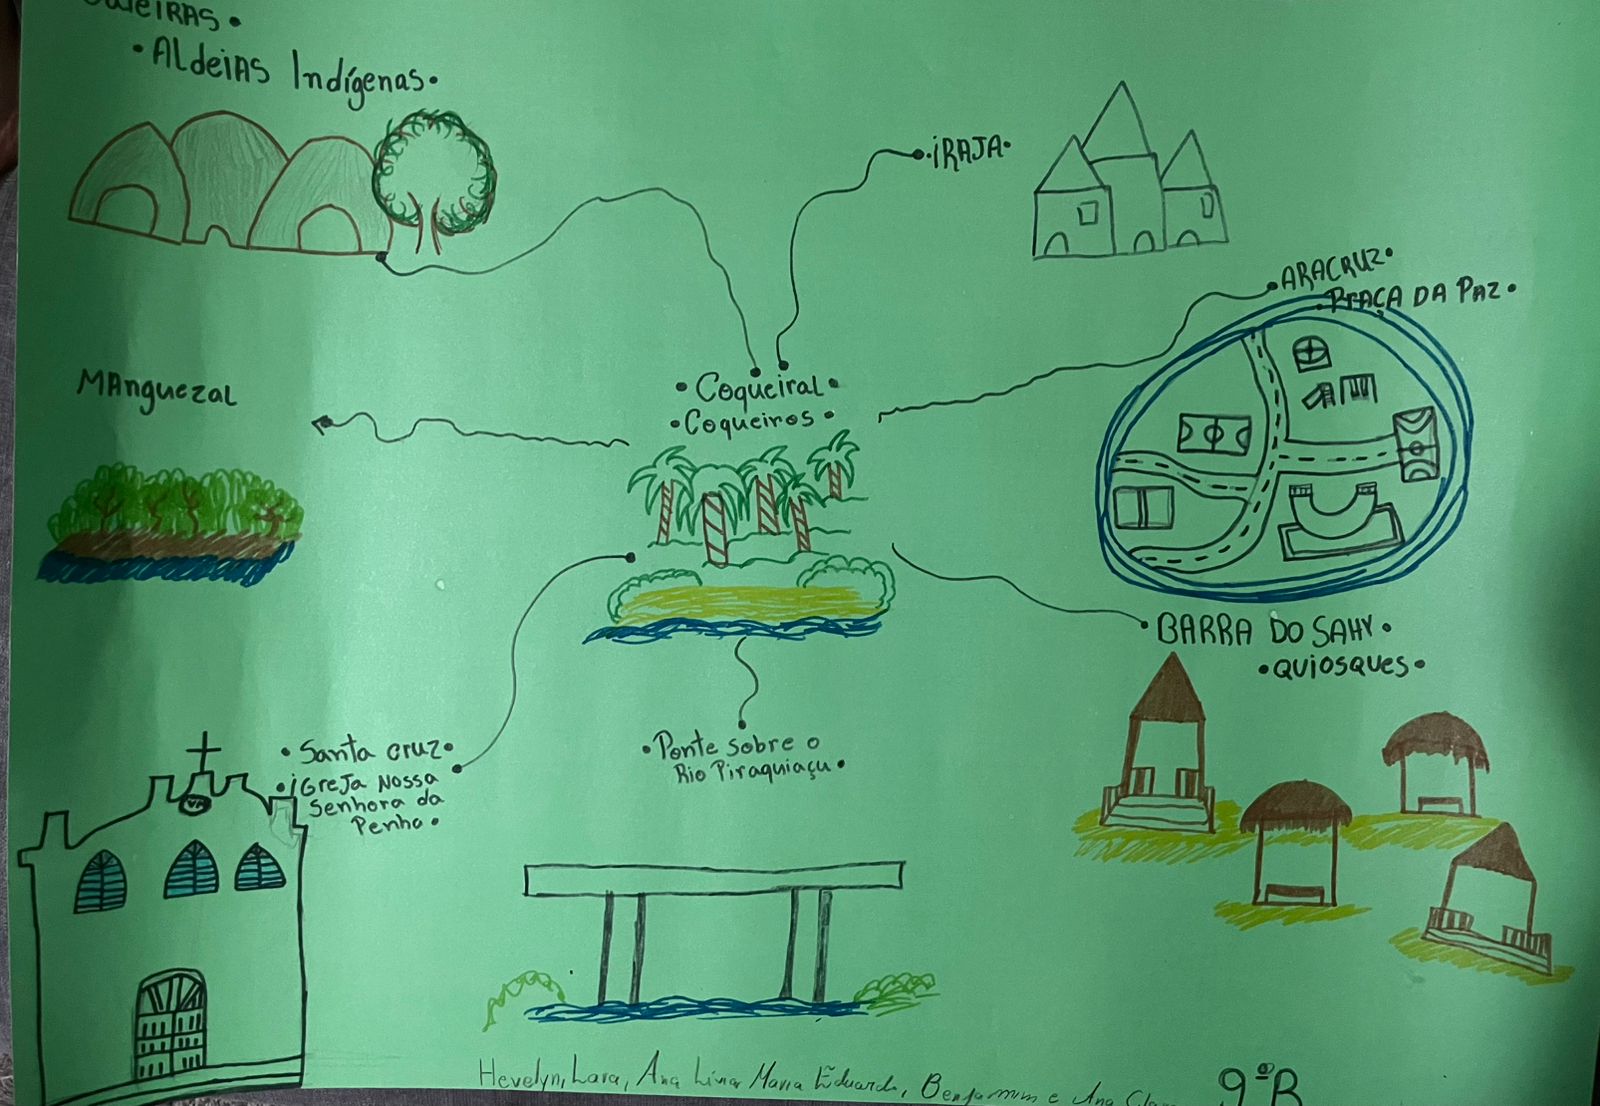 • Aldeias Indígenas•
•iRAJA•
•ARACRUZ•
•PRAÇA DA PAZ•
MAnguezal
• Coqueiral•
•Coqueiros •
• BARRA DO SAHY •
•QUIOSQUES•
• Santa cruz•
•iGreJa Nossa
Senhora da
Penha•
•Ponte sobre o
Rio Piraquiaçu•
Hevelyn, Lara, Ana Lívia, Maria Eduarda, Benjamim e Ana
9ºB